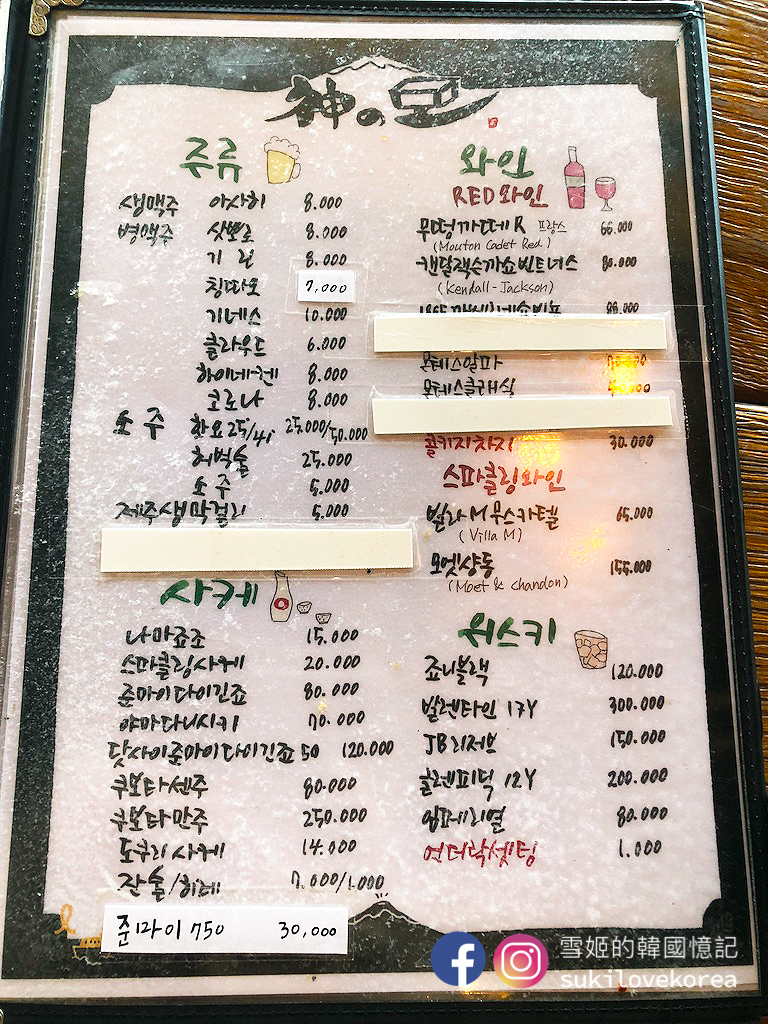 神の모
주류
생맥주 아사히 8.000
병맥주 삿뽀로 8.000
기린 8.000
칭따오 7,000
기네스 10.000
클라우드 6.000
하이네켄 8.000
코로나 8.000
소주 화요25/41 25.000/50.000
허벅술 25.000
소주 5.000
제주생막걸리 5.000
사케
나마죠조 15.000
스파클링사케 20.000
준마이다이긴죠 80.000
야마다니시키 70.000
닷사이준마이다이긴죠 50 120.000
쿠보타센주 80.000
쿠보타만주 250.000
도쿠리사케 14.000
잔술/히레 7.000/1.000
준마이 750 30,000
와인
RED와인
무떵까떼 R 프랑스 66.000
(Mouton Cadet Red)
캔달잭슨까쇼빈트너스 80.000
(Kendall-Jackson)
몬테스알파
몬테스클래식
콜키지차지 30.000
스파클링와인
빌라M무스카텔 65.000
(Villa M)
모엣샹동 155.000
(Moet & chandon)
위스키
죠니블랙 120.000
발렌타인 17Y 300.000
JB리저브 150.000
글렌피딕 12Y 200.000
임페리얼 80.000
언더락셋팅 1.000
雪姬的韓國憶記
sukilovekorea